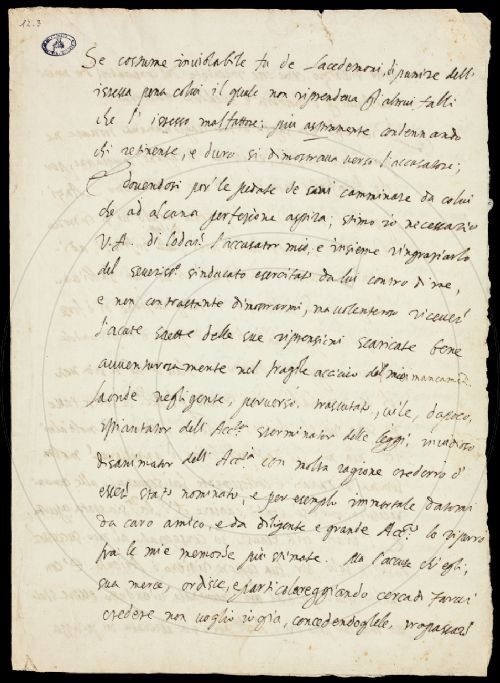 12.3
Se costume inviolabile fu de Lacedemoni, di punire dell'
istessa pena colui il quale non riprendeva gl'altrui falli
che l'istesso malfattore; più aspramente condennando
chi retinente, e duro si dimostrava verso l'accusatore;
E dovendosi per le pedate de savi camminare da colui
che ad alcuna perfezione aspira, stimo io necessario
V.A. di lodar l'accusator mio, e insieme ringraziarlo
del severiss.º sindacato esercitato da lui contro di me,
e non contrastante dimostrarmi, ma volentero ricever
l'acute saette delle sue riprensioni scaricate bene
avventurosamente nel fragile acciaio del mio
Laonde negligente, perverso, trascutato, vile, dapoco,
dell'Acc.ª sterminator delle leggi, invidioso
disanimator dell'Acc.ª con molta ragione crederrò d'
esser stato nominato, e per esempio immortale datomi
da caro amico, e da diligente e grande Acc.º lo riporrò
fra le mie memorie più stimate. Ma l'accuse ch'egli,
sua mercé, ordisce, e particolareggiando cerca di farvi
credere non voglio io già, concedendogliele, trapassar